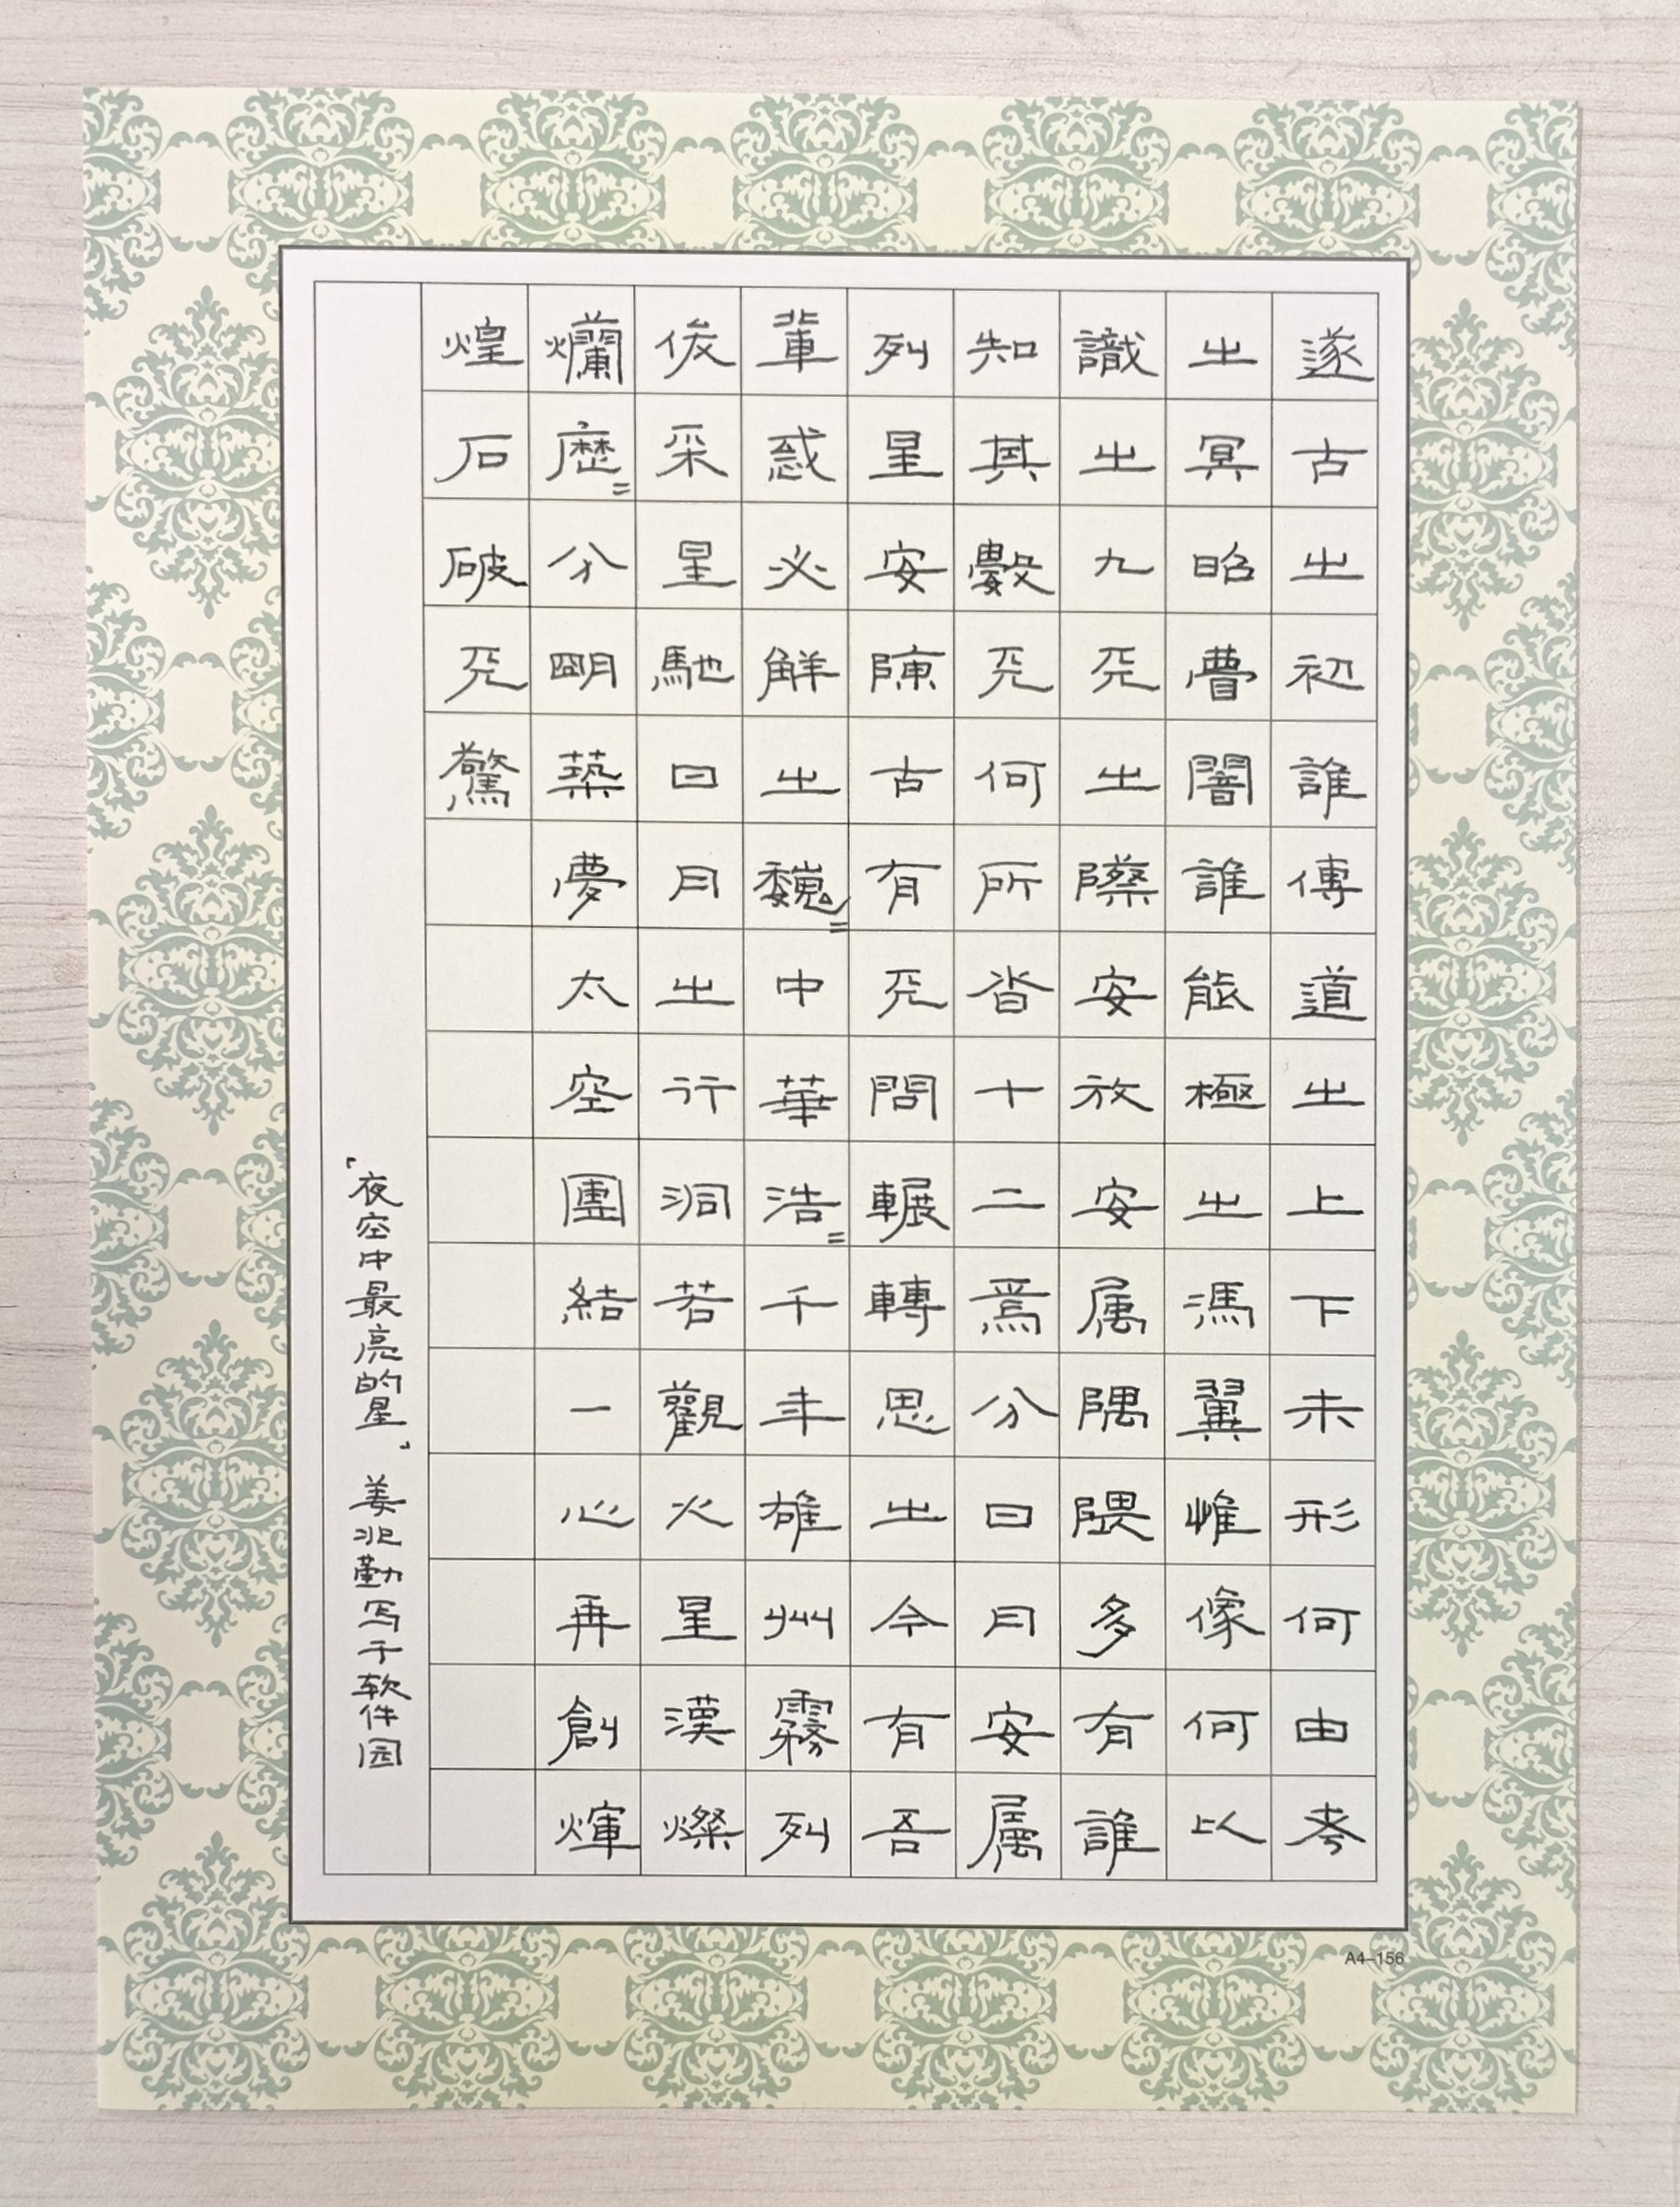 遂古之初誰傳道之上下未形何由考
之冥昭瞢闇誰能極之馮翼惟像何以
識之九天之際安放安属隅隈多有誰
知其數天何所沓十二焉分日月安屬
列星安陳古有天問輾轉思之今有吾
輩惑必解之巍〻中華浩〻千年雄州霧列
俊采星馳日月之行洞若觀火星漢燦
爛歷〻分明築夢太空團結一心再創輝
煌石破天驚
「夜空中最亮的星」 姜兆勤写于软件园
A4-156